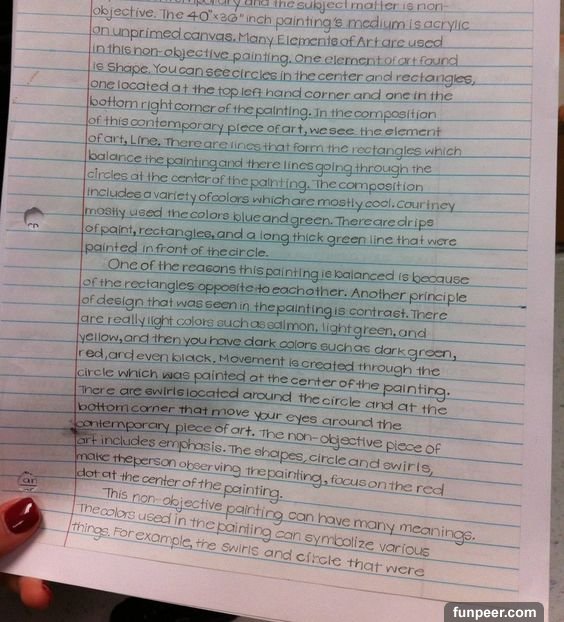 and the subject matter is non-
objective. The 40"x30" inch painting's medium is acrylic
on unprimed canvas. Many Elements of Art are used
in this non-objective painting. One element of art found
is Shape. You can see circles in the center and rectangles,
one located at the top left hand corner and one in the
bottom right corner of the painting. In the composition
of this contemporary piece of art, we see the element
of art, Line. There are lines that form the rectangles which
balance the painting and there lines going through the
circles at the center of the painting. The composition
includes a variety of colors which are mostly cool. Courtney
mostly used the colors blue and green. There are drips
of paint, rectangles, and a long thick green line that were
painted in front of the circle.
One of the reasons this painting is balanced is because
of the rectangles opposite to each other. Another principle
of design that was seen in the painting is contrast. There
are really light colors such as salmon, light green, and
yellow, and then you have dark colors such as dark green,
red, and even black. Movement is created through the
circle which was painted at the center of the painting.
There are swirls located around the circle and at the
bottom corner that move your eyes around the
contemporary piece of art. The non-objective piece of
art includes emphasis. The shapes, circle and swirls,
make the person observing the painting, focus on the red
dot at the center of the painting.
This non-objective painting can have many meanings.
The colors used in the painting can symbolize various
things. For example, the swirls and circle that were
funpeer.com